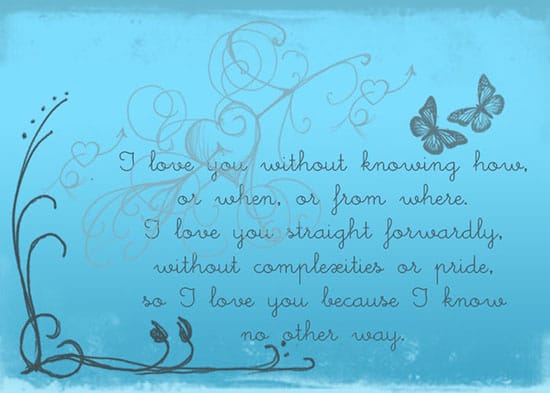 I love you without knowing how,
or when, or from where.
I love you straight forwardly,
without complexities or pride,
so I love you because I know
no other way.